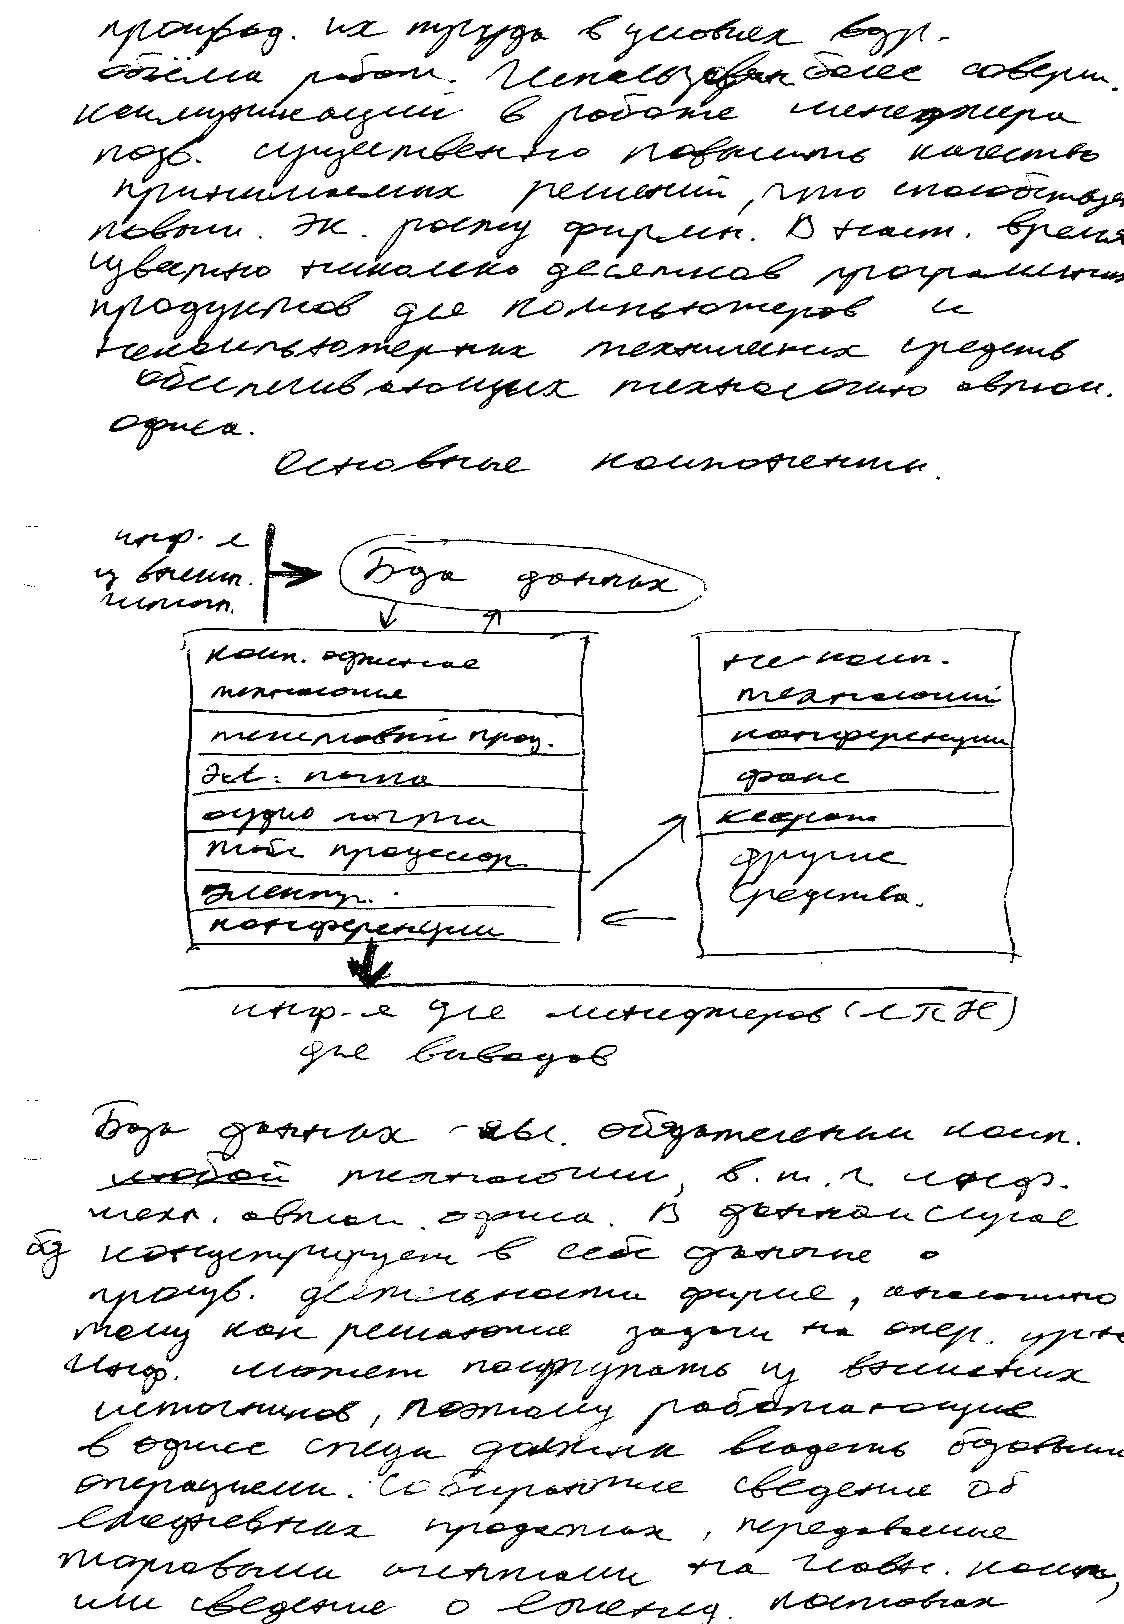 производ. их труда в условиях вур.
объёма работ. Использован более соверш.
коммуникаций в работе менеджера
позв. существенно повысить качество
принимаемых решений, что способствует
повыш. эк. росту фирмы. В наст. время
известно несколько десятков программных
продуктов для компьютеров и
некомпьютерных технических средств
обеспечивающих технологию автом.
офиса.
Основные компоненты.
инф-я
из внешн.
источ.
База данных
комп. офисные
технологии
текстовый проц.
эл. почта
аудио почта
табл процессор
электр.
конференции
не комп.
технологий
конференции
факс
ксерокс
другие
средства.
инф-я для менеджеров (ЛПР)
для выводов
База данных - явл. обязательным комп.
любой технологии, в.т.ч. инф.
техн. автом. офиса. В данном случае
бд концентрирует в себе данные о
произв. деятельности фирме, аналогично
тому как решающие задачи на опер. уров
Инф. может поступать из внешних
источников, поэтому работающие
в офисе спецы должны владеть базовыми
операциями. Собирающие сведение об
ежедневных продажах, передаваемые
торговыми агентами на главн. комп,
или сведение о еженед. поставках